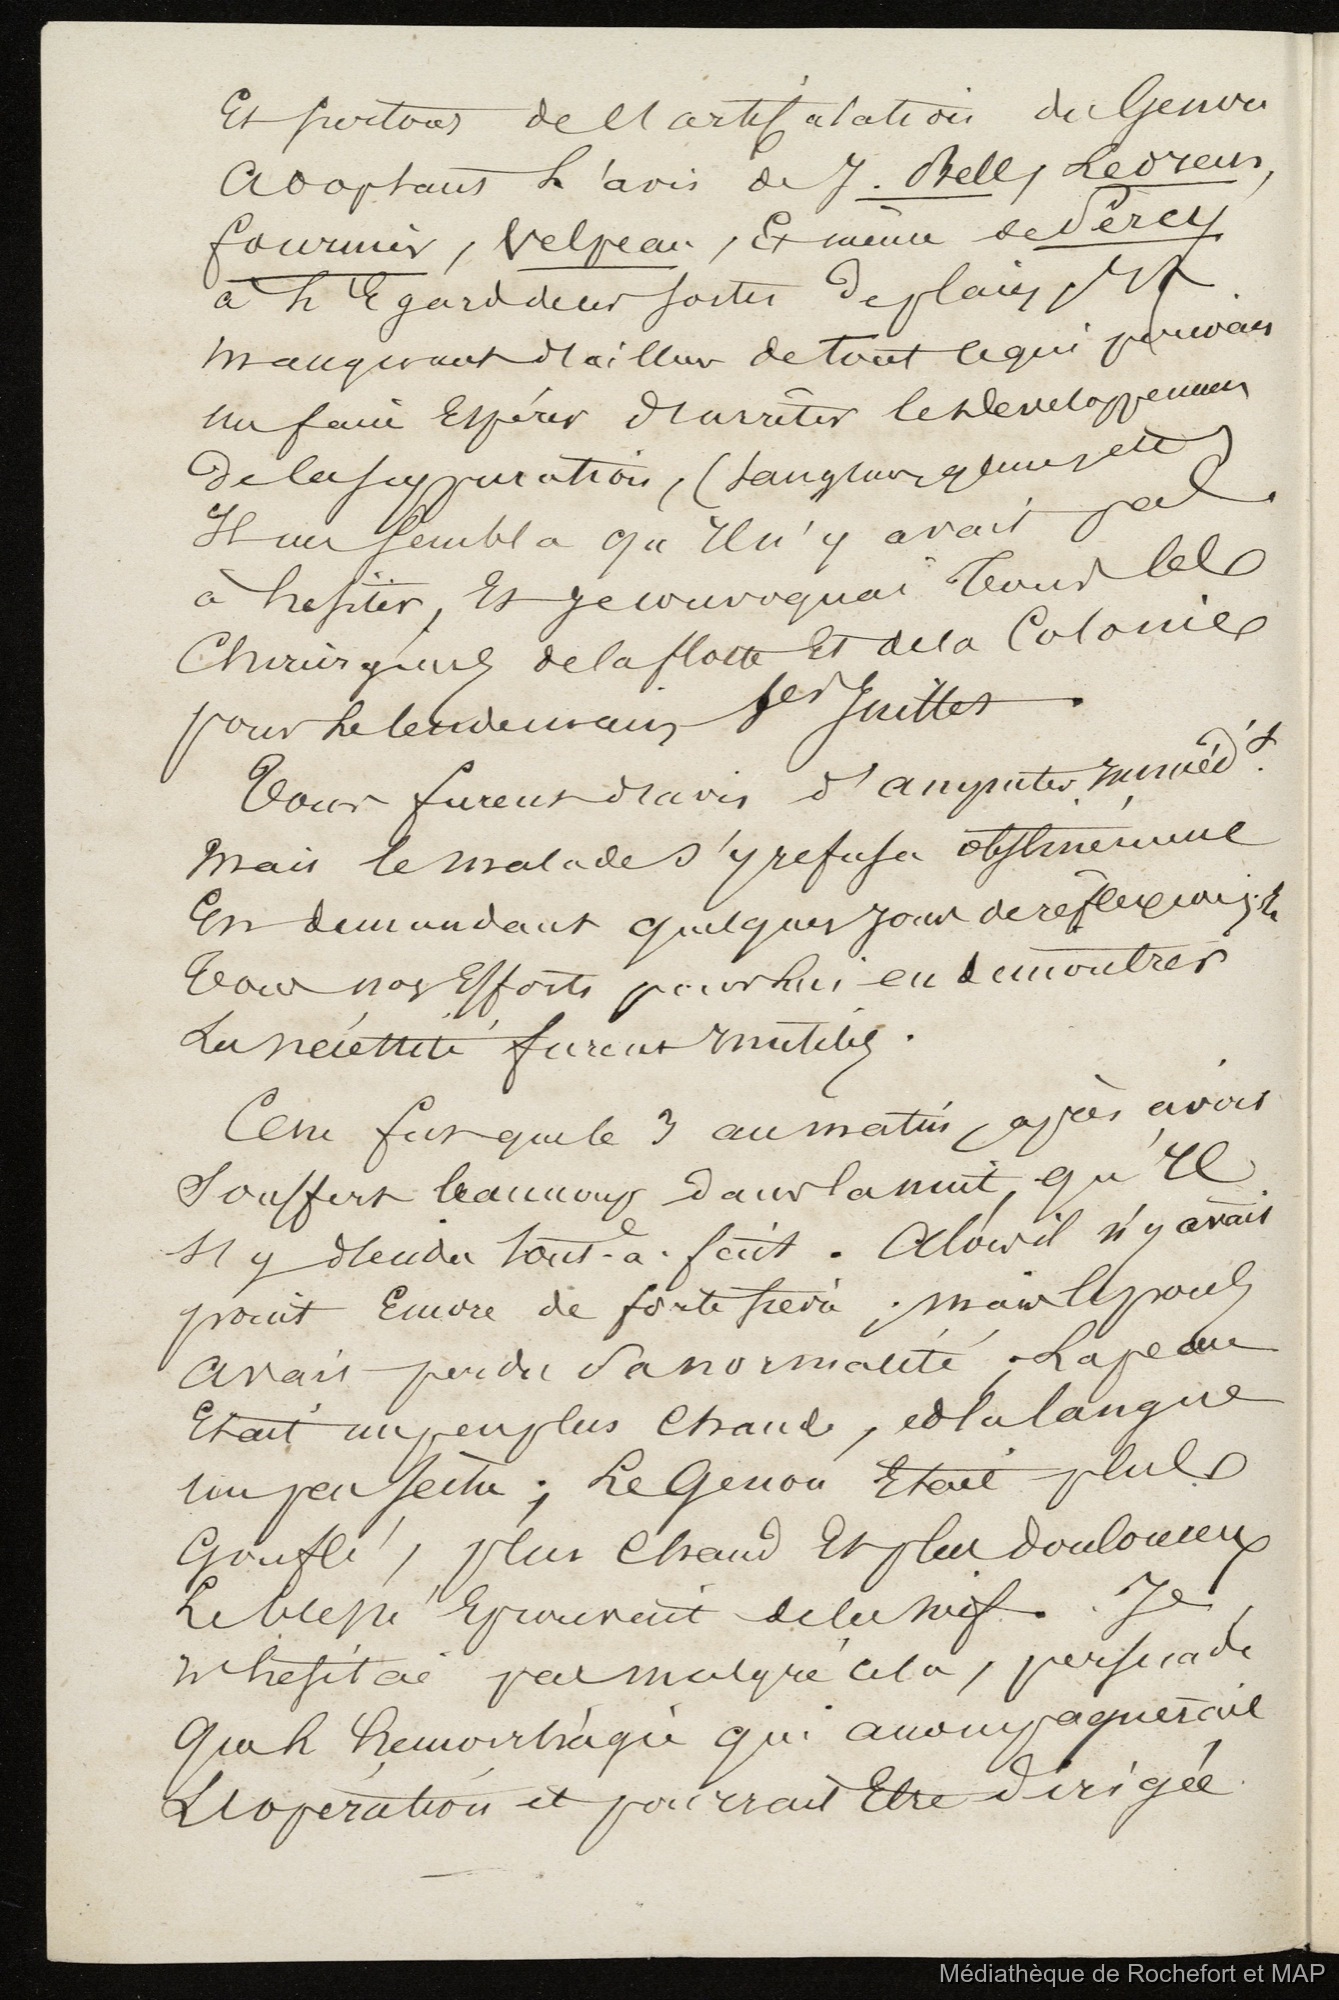 Et surtout de l'artiçulation du Genou
Adoptant L'avis de J. Bell, Ledrans,
fournier, Velpeau, Et même de Percy
à L'Egard de ces sortes De plaies, Et
manquant d'ailleurs de tout ce qui pouvait
me faire Espérer d'arrêter le développement
De la suppuration, (sangsues, glace, ett)
Il me sembla qu'Il n'y avait pas
à hesiter, Et je convoquai Tous les
Chirurgiens de la flotte Et de la Colonie
pour Le lendemain 1er Juillet.
Tous furent d'avis d'amputer Imméd.t
Mais le malade s'y refusa obstinément
En demandant quelques jours de réflexion; Et
Tous nos Efforts pour Lui en démontrer
La nécessité furent Inutiles.
Ce ne fut que le 3 au matin, après avoir
Souffert beaucoup dans la nuit, qu'Il
s'y décida tout-à-fait. Alors il n'y avait
point Encore de forte fievre; mais le pouls
avait perdu Sa normalité; La peau
Etait un peu plus Chaude, et la langue
un peu seche; Le Genou Etait plus
Gonflé, plus Chaud Et plus douloureux
Le blessé Eprouvait de la soif. Je
n'hesitai pas malgré cela, persuadé
Que L'hemorrhagie qui accompagnerait
L'opération et pourrait Etre dirigée
Médiathèque de Rochefort et MAP